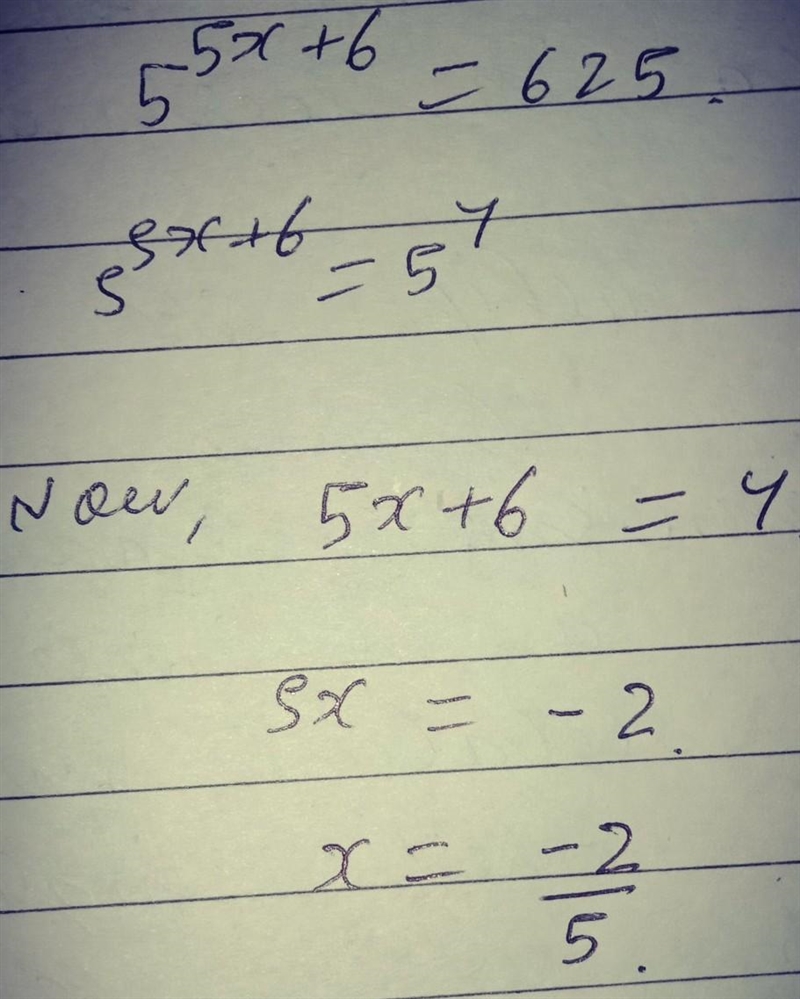 5^{5x+6} = 625.
5^{5x+6} = 5^4
Now, 5x+6 = 4
5x = -2.
x = \frac{-2}{5}.